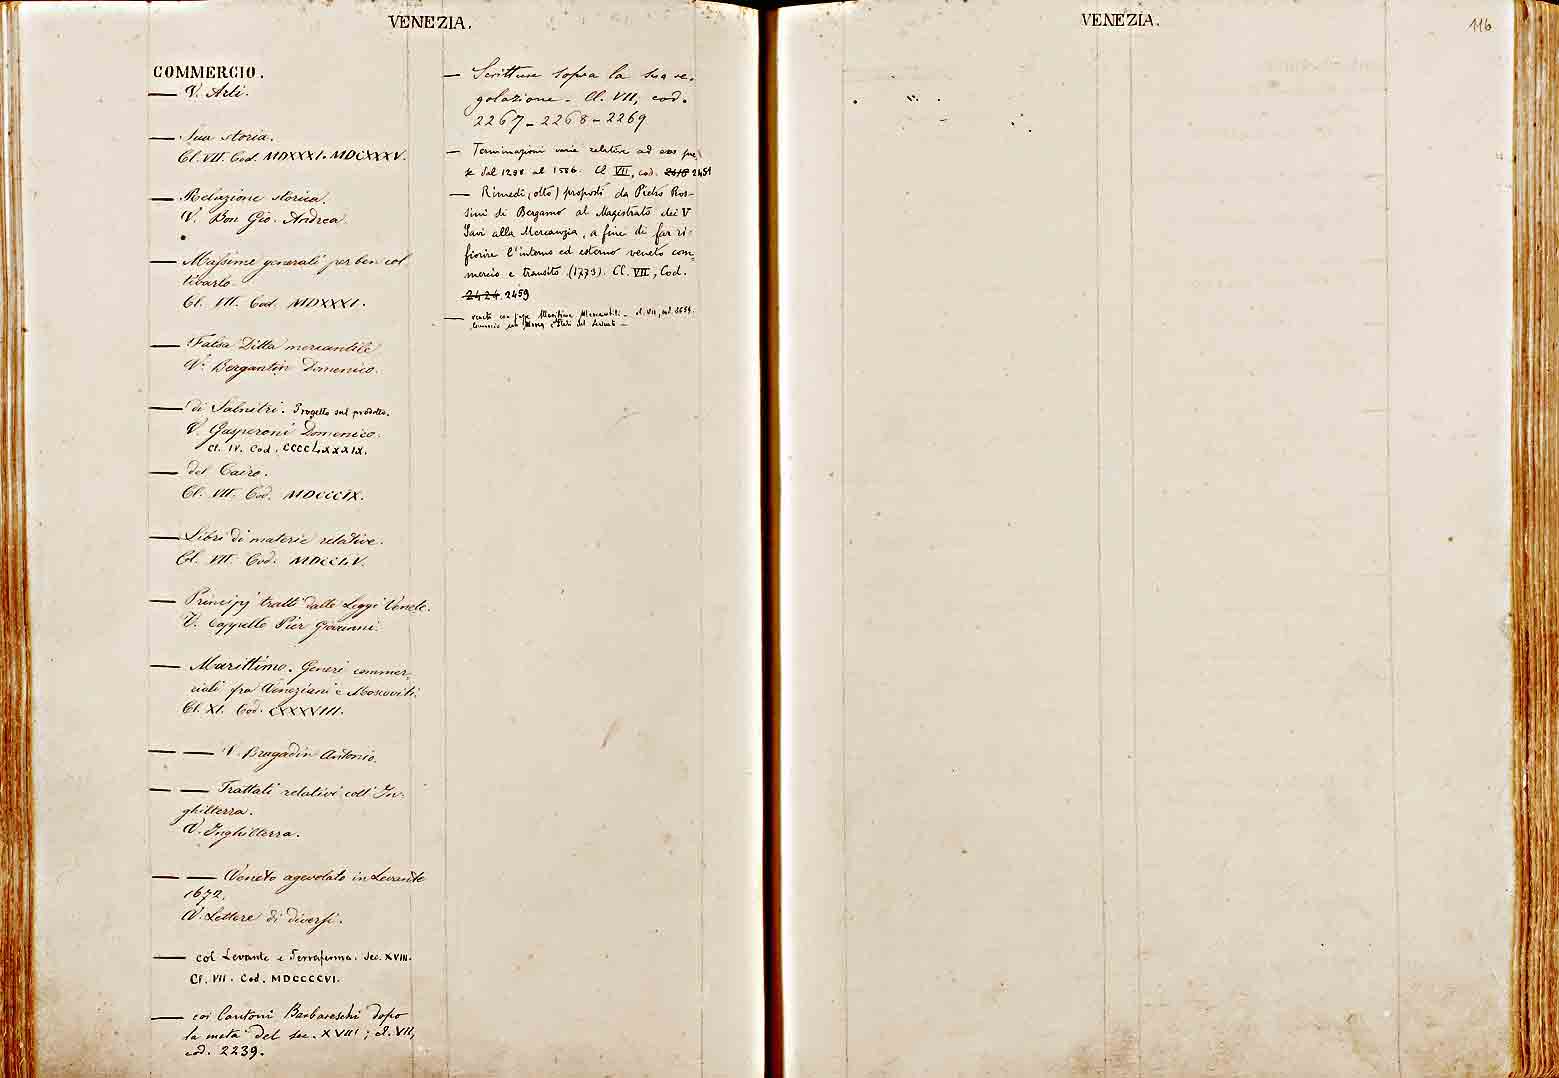 VENEZIA.
COMMERCIO.
— V. Arti.
— Sua storia.
Cl. VII. Cod. MDXXXI. MDCXXXV.
— Relazione storica.
V. Bon Gio. Andrea.
— Massime generali per ben col
tivarlo.
Cl. VII. Cod. MDXXXI.
— Falsa Ditta mercantile
V. Bergantin Domenico.
— di Salnitri. Progetto sul prodotto.
V. Gasperoni Domenico.
Cl. IV. Cod. CCCCLXXXIX.
— del Cairo.
Cl. VII. Cod. MDCCCIX.
— Libri di materie relative.
Cl. VII. Cod. MDCCLV.
— Principj tratti dalle Leggi Venete.
V. Cappello Pier Giovanni.
— Marittimo. Generi commer-
ciali fra Veneziani e Moscoviti.
Cl. XI. Cod. LXXXVIII.
— — V. Bragadin Antonio.
— — Trattati relativi coll' In-
ghilterra.
V. Inghilterra.
— — Veneto agevolato in Levante
1672.
V. Lettere di diversi.
— col Levante e Terraferma. Sec. XVIII.
Cl. VII. Cod. MDCCCCVI.
— coi Cantoni Barbareschi dopo
la metà del sec. XVIII; cl. VII,
cod. 2239.
— Scritture sopra la sua re-
golazione. Cl. VII, cod.
2267-2268-2269
— Terminazioni varie relative ad esso
dal 1298 al 1586. Cl VII, cod. 2451
— Rimedi, (otto) proposti da Pietro Ros-
sini di Bergamo al Magistrato dei V
Savi alla Mercanzia, a fine di far ri-
fiorire l'interno ed esterno veneto com-
mercio e transito. (1779). Cl. VII, Cod.
2424 2459
— veneto con
VENEZIA.
116